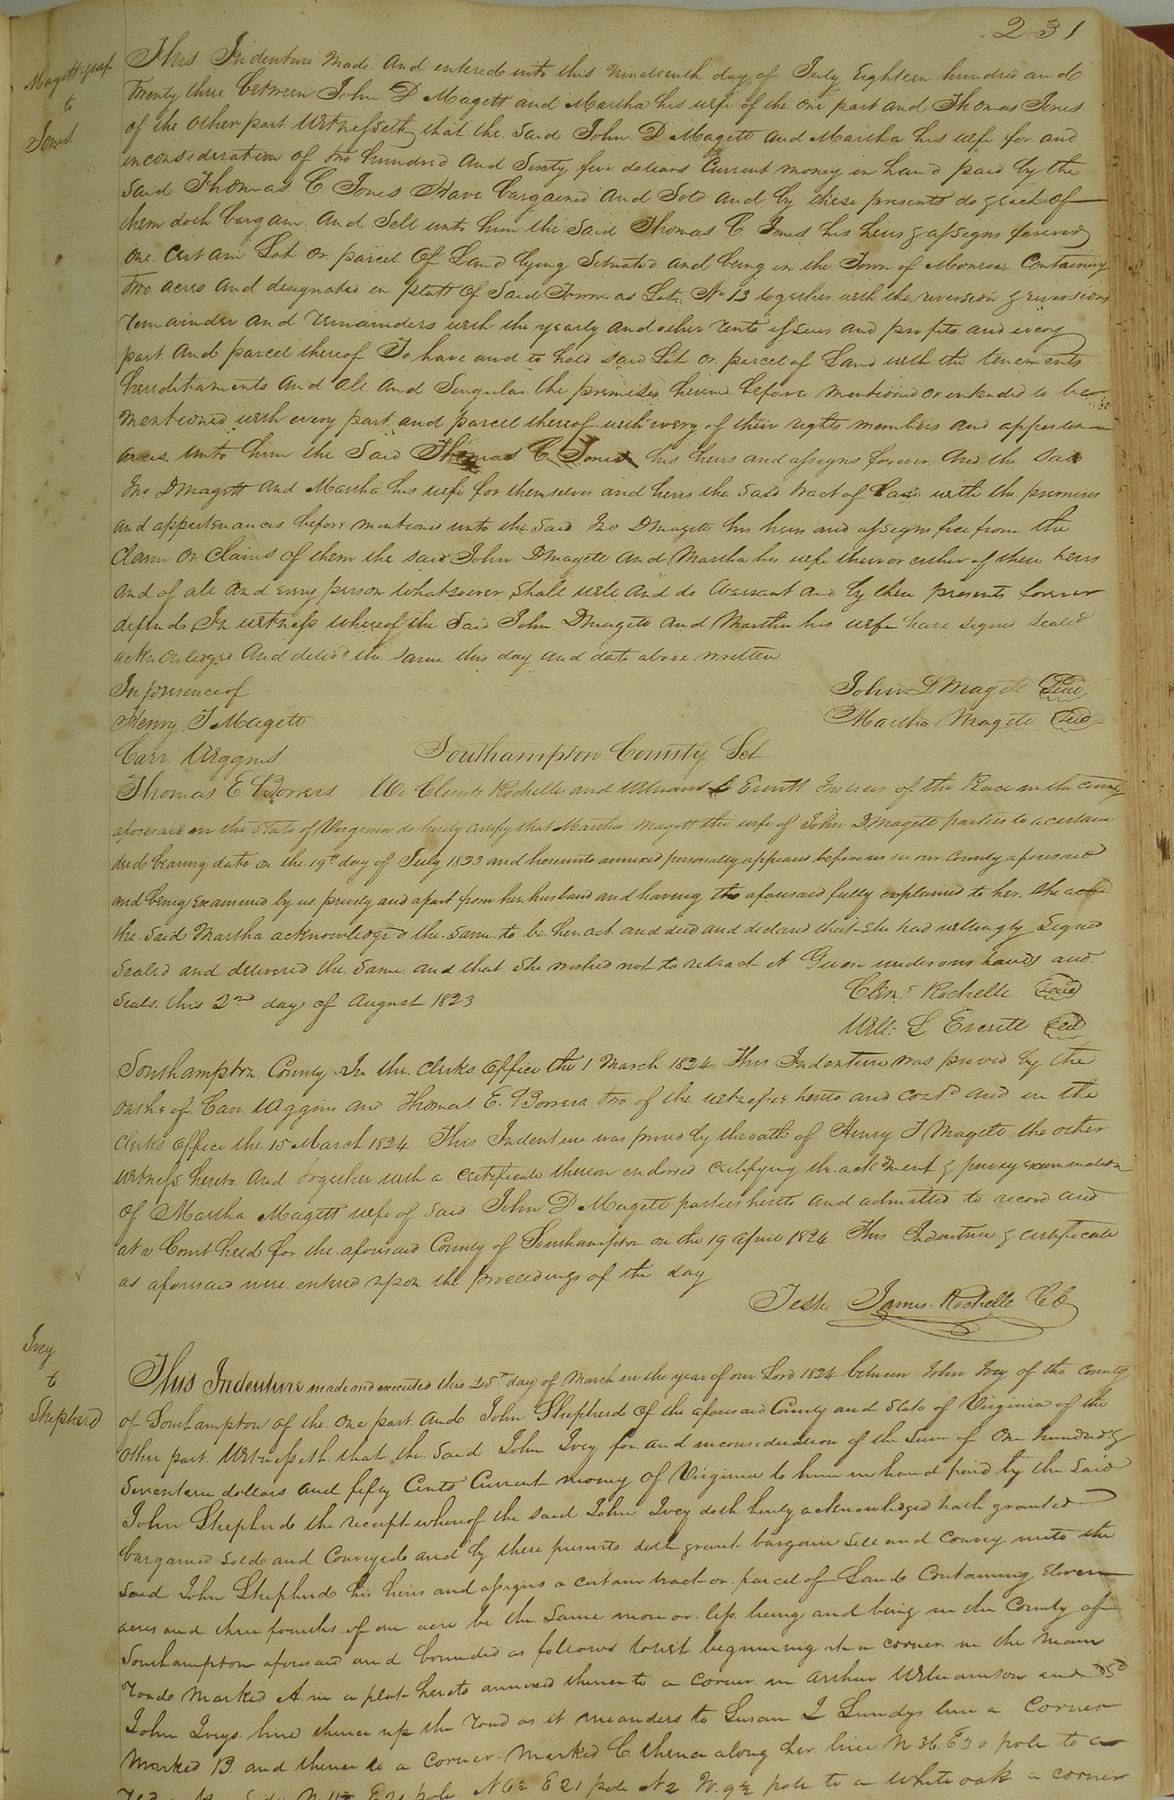 231
Magett & uxr
to
Jones
This Indenture made and entered into this nineteenth day of July Eighteen hundred and
twenty three between John D Magett and Martha his wife of the one part and Thomas Jones
of the other part Witnesseth that the said John D Magett and Martha his wife for and
inconsideration of two hundred and Sixty five dollars Current money in hand paid by the
said Thomas C Jones Have bargained and Sold and by these presents do & each of
them doth bargain and Sell unto him the said Thomas C Jones his heirs & assigns forever
one certain Lot or parcel of Land lying Situated and being in the Town of Monroe Containing
two acres and designated in platt of Said Town as Lot No 13 together with the reversion & reversions
remainder and remainders with the yearly and other rents issues and profits and every
part and parcel thereof To have and to hold said Lot or parcel of Land with the tenements
hereditaments and all and Singular the premises herein before mentioned or intended to be
mentioned with every part and parcel thereof with every of their rights members and appurten
ances unto him the Said Thomas C Jones his heirs and assigns forever And the said
Jno D Magett and Martha his wife for themselves and heirs the said tract of Land with the premises
and appurtenances before mentioned unto the said Jno D Magett his heirs and assigns free from the
Claim or Claims of them the said John D Magett and Martha his wife their or either of their heirs
and of all and every person whatsoever shall will and do warrant and by these presents forever
defend In witness whereof the Said John D Magett and Martha his wife have signed sealed
acknowledged and delivd the same this day and date above written
In presence of
John D Magett Seal
Henry T Magett
Martha Magett Seal
Carr Wiggins
Southampton County Set
Thomas E Borrers We Clemts Rochelle and William L Everitt Justices of the Peace in the county
aforesaid in the State of Virginia do hereby certify that Martha Magett the wife of John D Magett parties to a certain
deed bearing date on the 19th day of July 1823 and hereunto annexed personally appeared before us in our County aforesaid
and being examined by us privily and apart from her husband and having the aforesaid fully explained to her She
the said Martha acknowledged the same to be her act and deed and declared that she had willingly signed
sealed and delivered the same and that she wished not to retract it Given under our hands and
Seals this 2nd day of August 1823
Clemts Rochelle Seal
Will: L Everitt Seal
Southampton County In the Clerks Office the 1 March 1824 This Indenture was proved by the
oaths of Carr Wiggins and Thomas E. Borrers two of the witnesses hereto and and in the
Clerks Office the 15 March 1824 This Indenture was proved by the oath of Henry T Magett the other
witness hereto and together with a certificate thereon endorsed certifying the ackment & privy examination
of Martha Magett wife of said John D Magett parties hereto and admitted to record and
at a Court held for the aforesaid County of Southampton on the 19 April 1824 This Indenture & certificate
as aforesaid were entered upon the proceedings of the day
Teste James Rochelle CC
Ivey
to
Shepherd
This Indenture made and executed this 25th day of March in the year of our Lord 1824 between John Ivey of the County
of Southampton of the one part and John Shepherd of the aforesaid County and State of Virginia of the
other part. Witnesseth that the said John Ivey for and inconsideration of the sum of One hundred &
Seventeen dollars and fifty Cents Current money of Virginia to him in hand paid by the said
John Shepherd the receipt whereof the said John Ivey doth hereby acknowledged hath granted
bargained sold and Conveyed and by these presents doth grant bargain sell and Convey unto the
said John Shepherd his heirs and assigns a certain tract or parcel of Land Containing Eleven
acres and three fourths of an acre be the same more or less lying and being in the County of
Southampton aforesaid and bounded as follows towit beginning at a corner in the main
road marked A in a plat hereto annexed thence to a corner in Arthur Williamson and sd
John Iveys line thence up the road as it meanders to Susan L Lundys line a Corner
marked B and thence to a corner marked C thence along her line N 36 E 30 pole to a
pole N 62 E 21 pole N 2 W. 92 pole to a white oak a corner